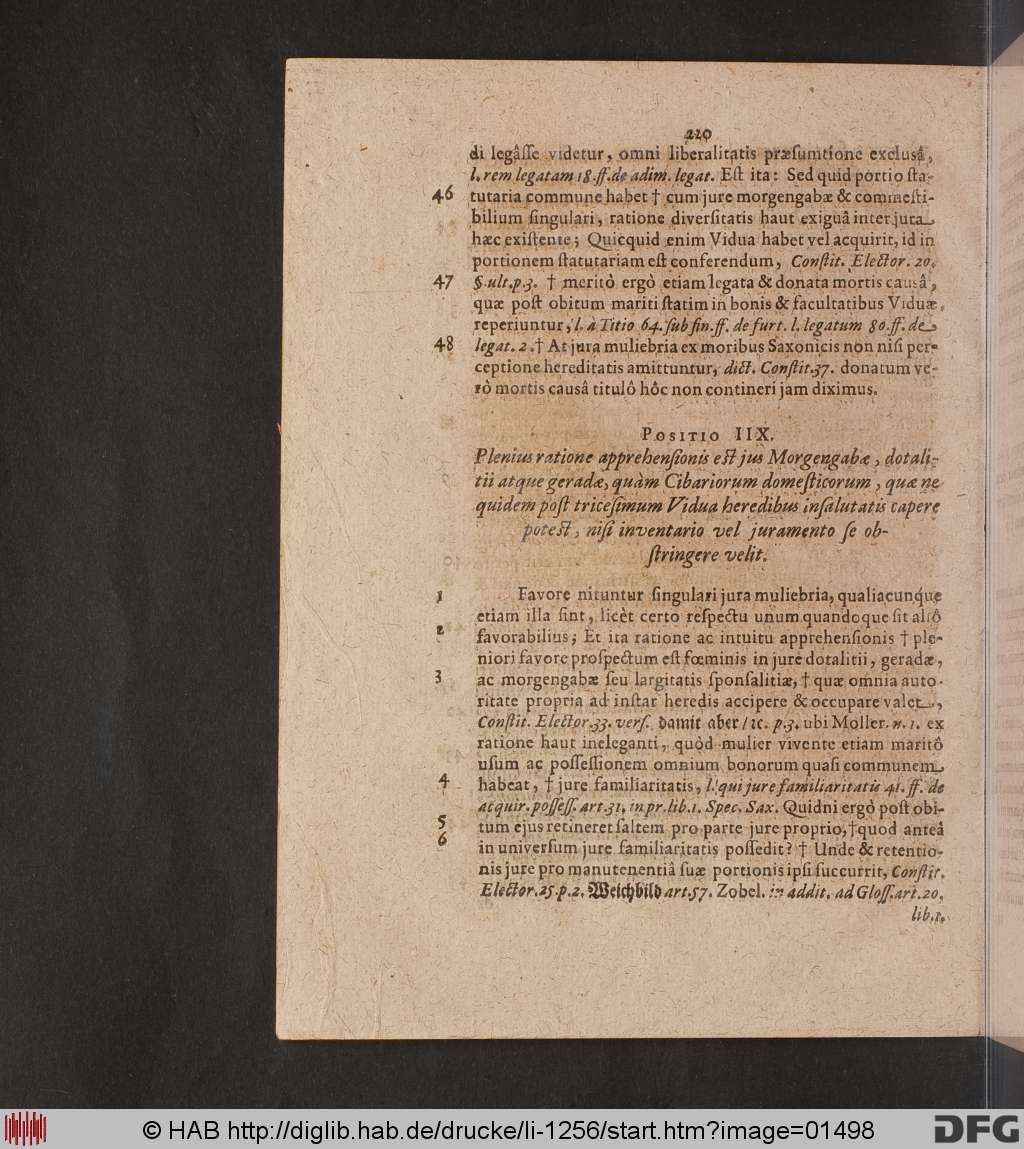 220
di legâsse videtur, omni liberalitatis præsumtione exclusâ,
l. rem legatam 18. ff. de adim. legat. Est ita: Sed quid portio sta-
46 tutaria commune habet † cum jure morgengabæ & commesti-
bilium singulari, ratione diversitatis haut exiguâ inter jura
hæc existente; Quicquid enim Vidua habet vel acquirit, id in
portionem statutariam est conferendum, Constit. Elector. 20.
47 §. ult. p. 3. † meritò ergò etiam legata & donata mortis causâ,
quæ post obitum mariti statim in bonis & facultatibus Viduæ
reperiuntur, l. à Titio 64. sub fin. ff. de furt. l. legatum 80. ff. de
48 legat. 2. † At jura muliebria ex moribus Saxonicis non nisi per-
ceptione hereditatis amittuntur, dict. Constit. 37. donatum ve-
rò mortis causâ titulô hôc non contineri jam diximus.
POSITIO IIX.
Plenius ratione apprehensionis est jus Morgengabæ, dotali-
tii atque geradæ, quàm Cibariorum domesticorum, quæ ne
quidem post tricesimum Vidua heredibus insalutatis capere
potest, nisi inventario vel juramento se ob-
stringere velit.
1 Favore nituntur singulari jura muliebria, qualiacunque
etiam illa sint, licèt certo respectu unum quandoque sit aliô
2 favorabilius; Et ita ratione ac intuitu apprehensionis † ple-
niori favore prospectum est fœminis in jure dotalitii, geradæ,
3 ac morgengabæ seu largitatis sponsalitiæ, † quæ omnia auto-
ritate propria ad instar heredis accipere & occupare valet,
Constit. Elector. 33. vers. damit aber / ꝛc. p. 3. ubi Moller. n. 1. ex
ratione haut ineleganti, quòd mulier vivente etiam maritô
usum ac possessionem omnium bonorum quasi communem
4 habeat, † jure familiaritatis, l. qui jure familiaritatis 41. ff. de
atquir. possess. art. 31. in pr. lib. 1. Spec. Sax. Quidni ergò post obi-
5 tum ejus retineret saltem pro parte jure proprio, † quod anteâ
6 in universum jure familiaritatis possedit? † Unde & retentio-
nis jure pro manutenentiâ suæ portionis ipsi succurrit, Constit.
Elector. 25. p. 2. Weichbild art. 57. Zobel. in addit. ad Gloss. art. 20.
lib. 1.
© HAB http://diglib.hab.de/drucke/li-1256/start.htm?image=01498
DFG